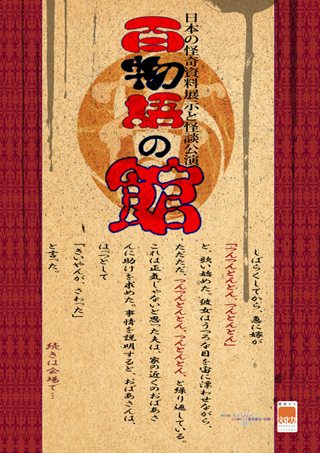 日本の怪奇資料展示と怪談公演
百物語の館
しばらくしてから、急に嫁が
「つんつんどんどん、つんどんどん」
と、歌い始めた。彼女はうつろな目を宙に漂わせながら、
ただただ、「つんつんどんどん、つんどんどん」と繰り返している。
これは正気じゃないと思った夫は、家の近くのおばあさ
んに助けを求めた。事情を説明すると、おばあさんは、
はっとして
「きいやんが、さわった」
と言った。
続きは会場で…